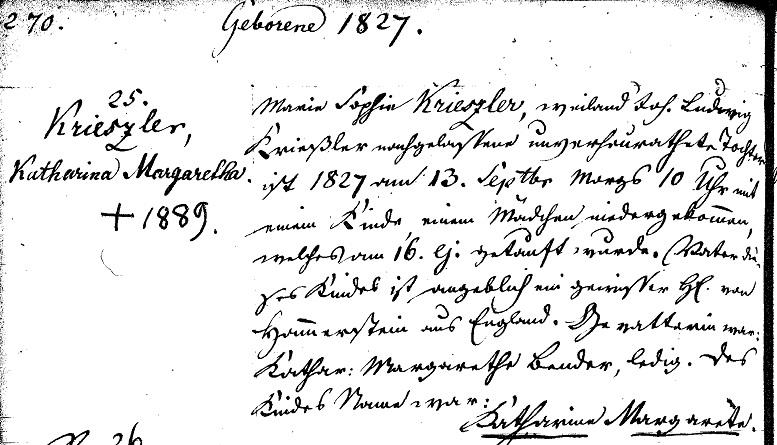 270.
Geborene 1827.
25.
Krieszler,
Katharina Margaretha
+ 1889.
Marie Sophie Krieszler, weiland Joh. Ludwig
Krießler nachgelassene unverheurathete Tochter
ist 1827 am 13. Septbr Morgs 10 Uhr mit
einem Kinde, einem Mädchen niedergekommen,
welches am 16. ej. getauft wurde. (Vater die-
ses Kindes ist angeblich ein gewisser H. von
Hammerstein aus England. Gevatterin war:
Kathar: Margarethe Bender, ledig. Des
Kindes Name war:
Katharine Margarete.
26